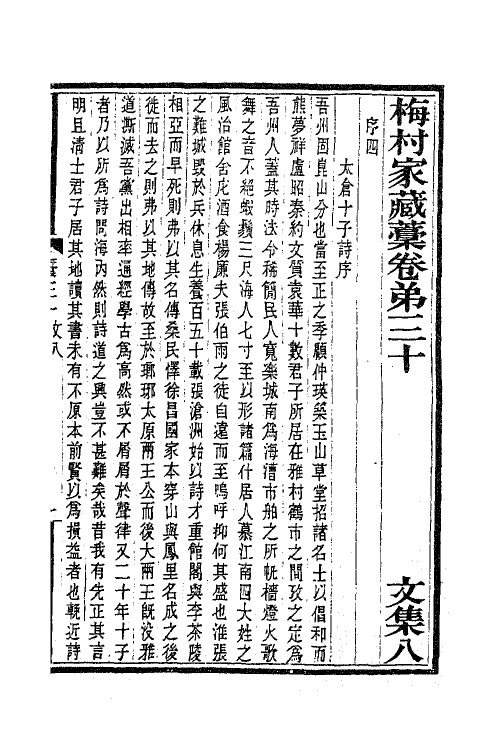 梅村家藏藁卷弟三十 文集八
序四
太倉十子詩序
吾州固崑山分也當至正之季顧仲瑛築玉山草堂招諸名士以倡和而
熊夢祥盧昭秦約文質袁華十數君子所居在雅村鶴市之間攷之定爲
吾州人蓋其時法令稀簡民人寬樂城南爲海漕市舶之所帆檣燈火歌
舞之音不絕蝦鬚三尺海人七寸至以形諸篇什居人慕江南四大姓之
風治館舍庀酒食楊廉夫張伯雨之徒自遠而至嗚呼抑何其盛也淮張
之難城毀於兵休息生養百五十載張滄洲始以詩才重館閣與李茶陵
相亞而早死則弗以其名傳桑民懌徐昌國家本穿山與鳳里名成之後
徙而去之則弗以其地傳故至於瑯琊太原兩王公而後大兩王旣沒雅
道澌滅吾黨出相率通經學古爲高然或不屑屑於聲律又二十年十子
者乃以所爲詩問海內然則詩道之興豈不甚難矣哉昔我有先正其言
明且淸士君子居其地讀其書未有不原本前賢以爲損益者也輓近詩